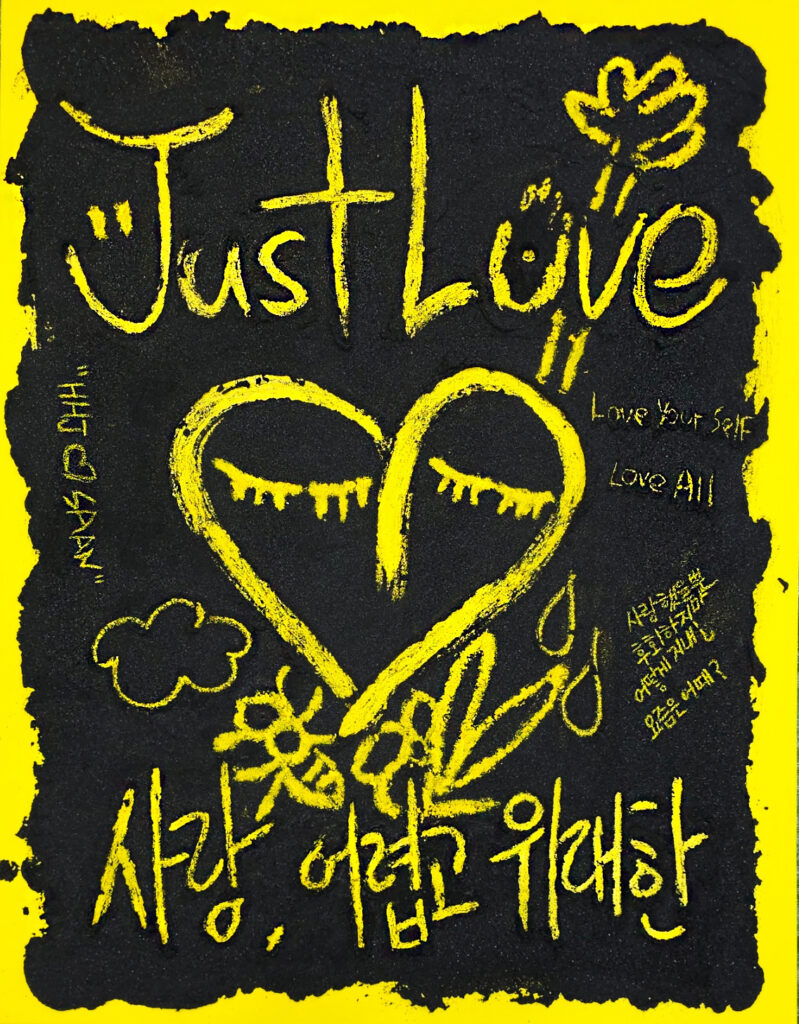 Just Love
Love Your Self
Love All
사랑했을뿐
후회하지마
어떻게 지내
요즘은 어때?
사랑, 어렵고 위대한